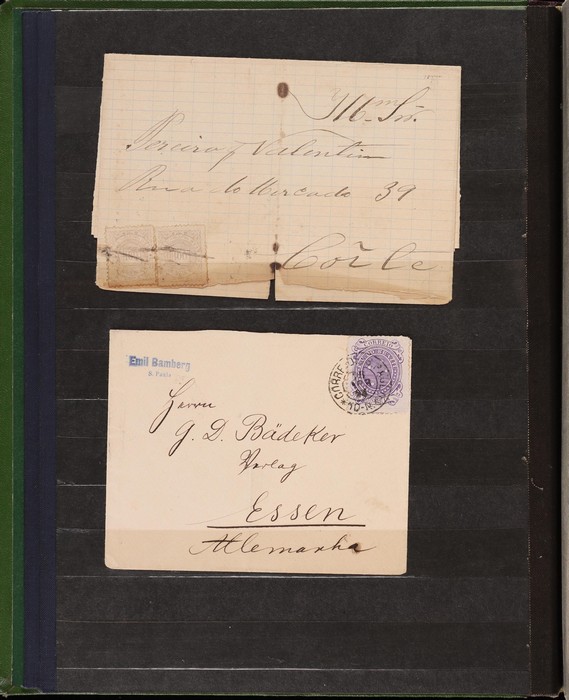 Illm. Snr.
Pereira & Valentim
Rua do Mercado 39
Côrte
Emil Bamberg
S. Paulo
CORREIO
Herrn
G. D. Bädeker
Verlag
Essen
Allemanha